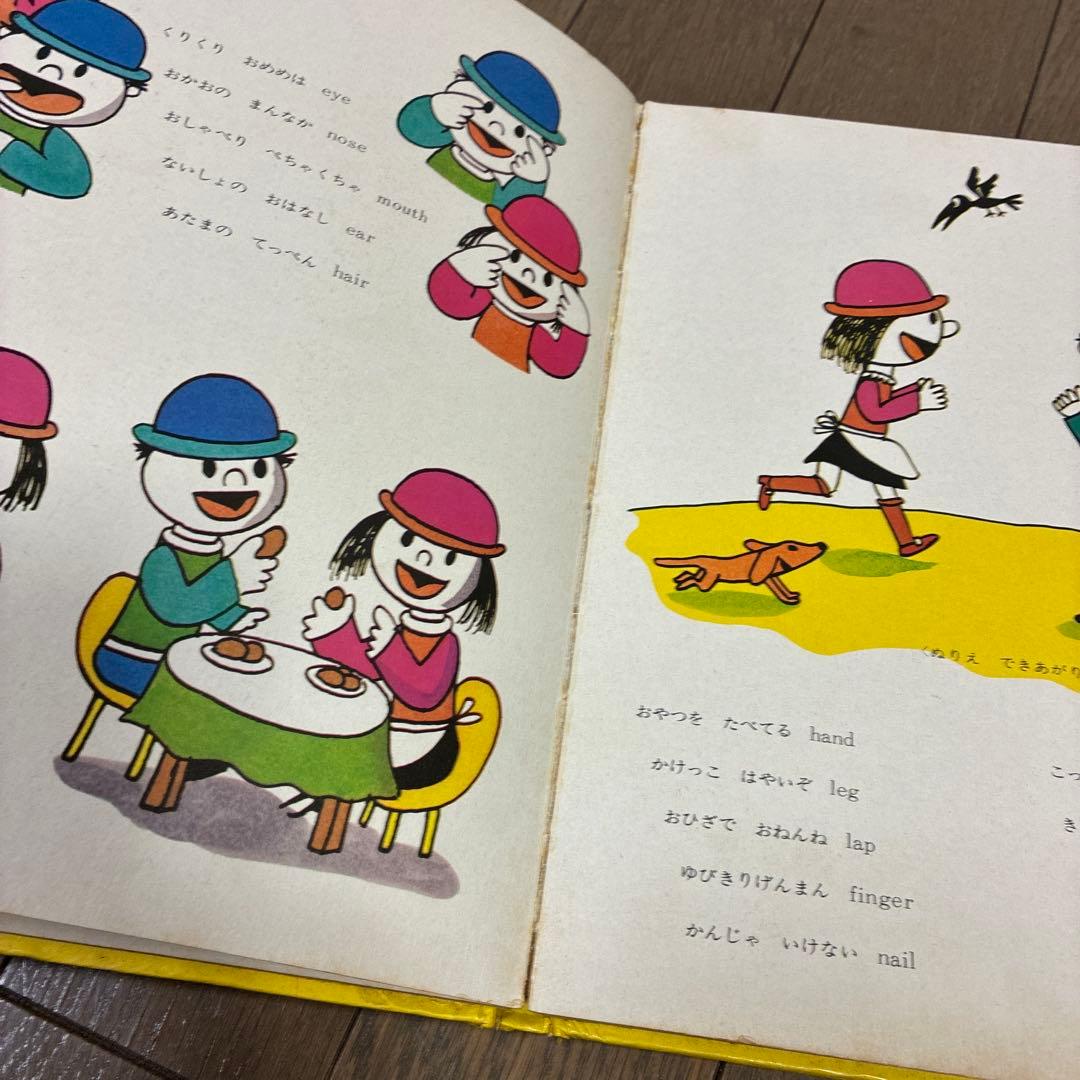 くりくり おめめは eye
おかおの まんなか nose
おしゃべり ぺちゃくちゃ mouth
ないしょの おはなし ear
あたまの てっぺん hair
くぬりえ できあがり
おやつを たべてる hand
かけっこ はやいぞ leg
おひざで おねんね lap
ゆびきりげんまん finger
かんじゃ いけない nail
こっ
き